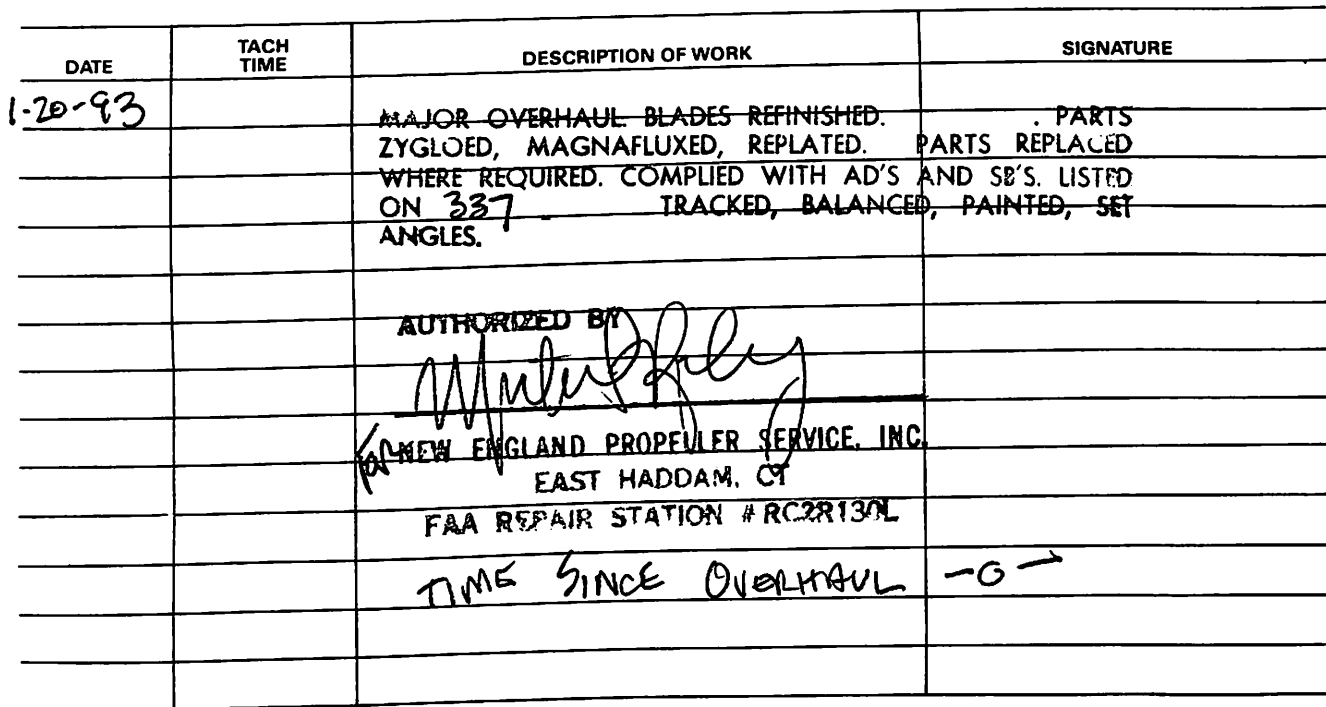 DATE TACH TIME DESCRIPTION OF WORK SIGNATURE
1-20-93
MAJOR OVERHAUL. BLADES REFINISHED. . PARTS
ZYGLOED, MAGNAFLUXED, REPLATED. PARTS REPLACED
WHERE REQUIRED. COMPLIED WITH AD'S AND SB'S. LISTED
ON 337 TRACKED, BALANCED, PAINTED, SET
ANGLES.
AUTHORIZED BY
for NEW ENGLAND PROPELLER SERVICE, INC.
EAST HADDAM, CT
FAA REPAIR STATION # RC2R130L
TIME SINCE OVERHAUL -0-